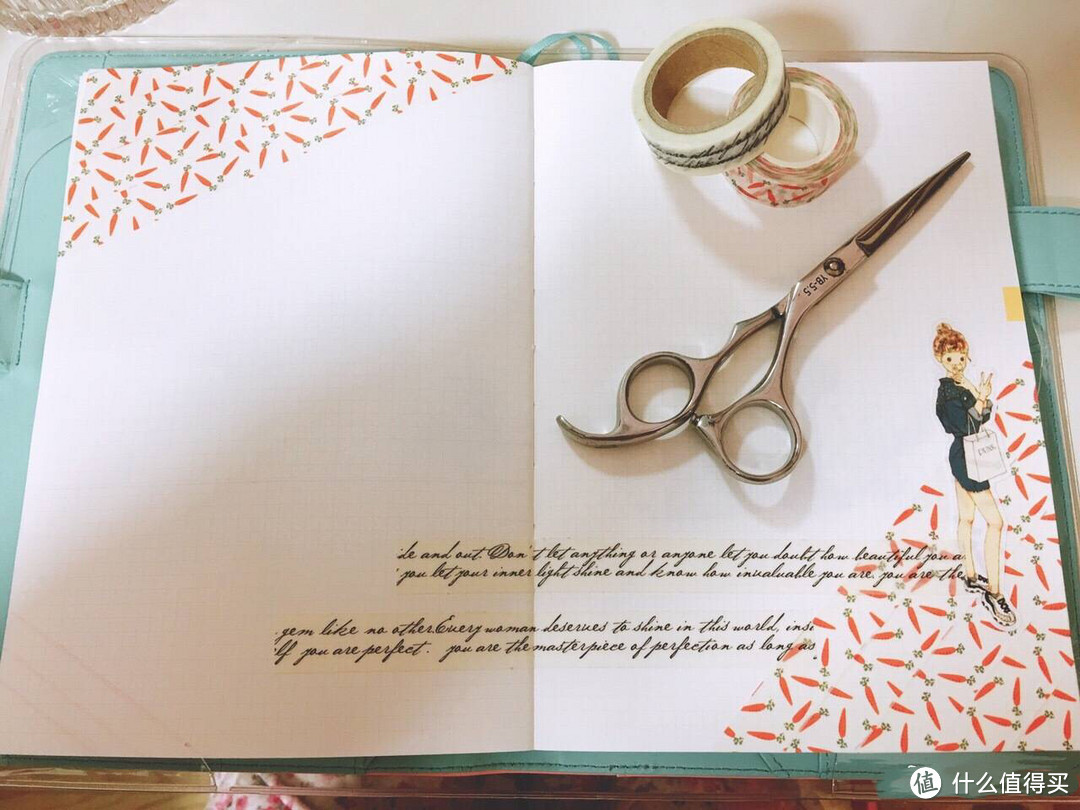 YB-5.5
de and out Don't let anything or anyone let you doubt how beautiful you a
you let your inner light shine and know how invaluable you are. you are the
gem like no other. Every woman deserves to shine in this world, insi
lf you are perfect. you are the masterpiece of perfection as long as
值 什么值得买